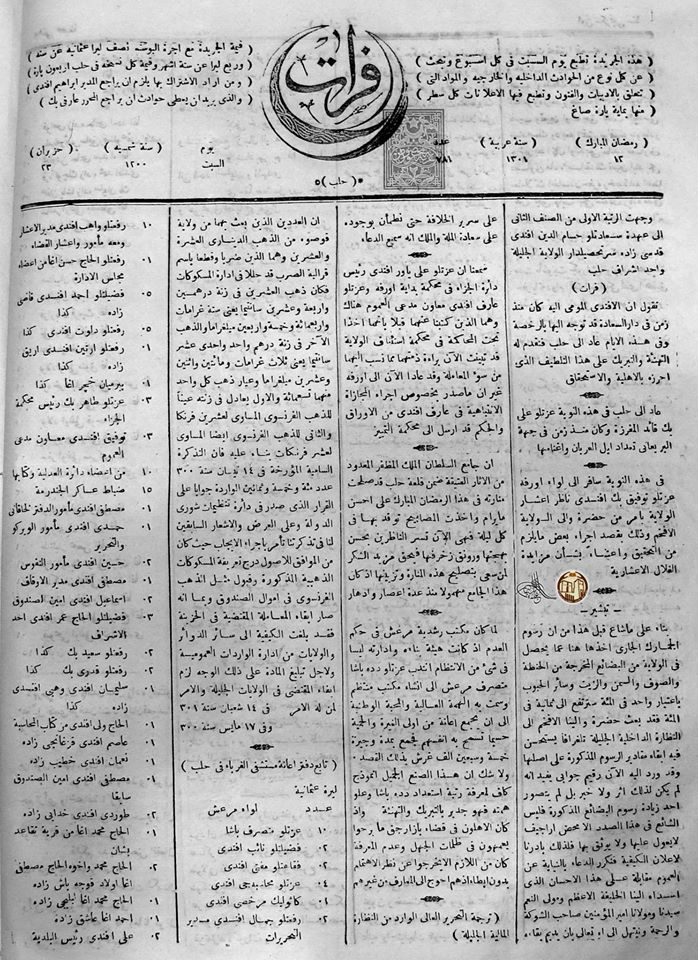 فرات
هذه الجريدة تطبع يوم السبت فى كل اسبوع وتبحث
عن كل نوع من الحوادث الداخليه والخارجيه والمواد التى
تتعلق بالادبيات والفنون وتطبع فيها الاعلانات كل سطر
منها بماية پارة صاغ
قيمة الجريدة مع اجرة البوسته نصف ليرا عثمانية عن سنة
وربع ليرا عن ستة اشهر وقيمة كل نسخة فى حلب اربعون پارة
ومن اراد الاشتراك بها يلزم ان يراجع المدير ابراهيم افندى
والذى يريد ان يعطى حوادث ان يراجع المحرر عارفى بك
( رمضان المبارك ) ( سنة عربية ) عدد
١٢ ١٣٠١ ٧٨١
( حلب )
يوم ( سنة شمسيه ) ( حزيران )
السبت ١٣٠٠ ٢٣
وجهت الرتبة الاولى من الصنف الثانى
الى عهدة سعادتلو حسام الدين افندى
قدسى زاده سرتحصيلدار الولاية الجليلة
واحد اشراف حلب
( فرات )
نقول ان الافندى المومى اليه كان منذ
زمن فى دار السعادة قد توجه اليها بالرخصة
وفى هذه الايام عاد الى حلب فنقدم له
التهنئة والتبريك على هذا التلطيف الذى
احرزه بالاهلية والاستحقاق
عاد الى حلب فى هذه النوبة عزتلو على
بك قائد المفرزة وكان منذ زمن فى جهة
البر يعانى تعداد ابل العربان واغنامها
فى هذه النوبة سافر الى لواء اورفه
عزتلو توفيق بك افندى ناظر اعشار
الولاية بامر من حضرة والى الولاية
الافخم وذلك بقصد اجراء بعض مايلزم
من التحقيق واعتناء بشأن مزايدة
الغلال الاعشارية
تبشير
بناء على ماشاع قبل هذا من ان رسوم
الجمارك الجارى اخذها هنا عما يحصل
فى الولاية من البضائع المخرجة من الحنطة
والصوف والسمن والزيت وسائر الحبوب
باعتبار واحد فى المئة سترتفع الى ثمانية فى
المئة فقد بعث حضرة والينا الافخم الى
النظارة الداخلية الجليلة تلغرافا يستحسن
فيه ابقاء مقادير الرسوم المذكورة على اصلها
وقد ورد اليه الآن رقيم جوابى يفيد انه
لم يكن لذلك اثر ولا خبر بل لم يتصور
احد زيادة رسوم البضائع المذكورة فليس
الشائع فى هذا الصدد الا محض اراجيف
لايعول عليها ولا يوثق بها فلذلك بادرنا
لاعلان الكيفية فنكرر الدعاء بالنيابة عن
العموم مقابلة على هذا الاحسان الذى
اسداه الينا الخليفة الاعظم ومولى النعم
سيدنا ومولانا امير المؤمنين صاحب الشوكة
والرحمة ونبتهل الى الله تعالى بان يديم بقاءه
على سرير الخلافة حتى نطمأن بوجوده
على سعادة الملة والملك انه سميع الدعاء
سمعنا ان عزتلو على ياور افندى رئيس
دائرة الجزاء فى محكمة بداية اورفه وعزتلو
عارف افندى معاون مدعى العموم هناك
وهما الذين كتبنا عنهما قبلا بانهما اخذا
تحت المحاكمة فى محكمة استئناف الولاية
قد تبينت الآن براءة ذمتهما مما نسب اليهما
من سوء المعاملة وقد عادا الآن الى اورفه
غير ان ماصدر بخصوص اجراء المجازاة
الانتباهية فى عارف افندى من الاوراق
والحكم قد ارسل الى محكمة التمييز
ان جامع السلطان الملك المظفر المعدود
من الآثار العتيقة ضمن قلعة حلب قد صلحت
منارته فى هذا الرمضان المبارك على احسن
مايرام واخذت المصابيح توقد بها فى
كل ليلة فهى الآن تسر الناظرين بحسن
بهجتها ورونق زخرفها فيحق مزيد الشكر
لمن سعى بتصليح هذه المنارة وتزيينها اذ كان
هذا الجامع مهمولا منذ عدة اعصار وادهار
لما كان مكتب رشدية مرعش فى حكم
العدم اذ كانت هيئة بناءه وادارته ليسا
فى شئ من الانتظام انتدب عزتلو دده باشا
متصرف مرعش الى انشاء مكتب منتظم
وسمت به الهمة العالية والمحبة الوطنية
الى ان يجمع اعانة من اولى الغيرة والحمية
حسبما تسمح به انفسهم فجمع بمدة وجيزة
خمسة وسبعين الف غرش بذلك القصد
ولا شك ان هذا الصنع الجميل انموذج
كاف لمعرفة رتبة استعداد دده باشا وعلو
همته فهو جدير بالتبريك والتهنئة واذ
كان الاهلون فى قضاء بازارجق مابرحوا
يعمهون فى ظلمات الجهل وعدم المعرفة
كان من اللازم الايخرجوا عن نظر الاهتمام
بدون ايفاء اذهم احوج الى المعارف من غيرهم
( ترجمة التحرير العالى الوارد من النظارة
المالية الجليلة )
ان العددين الذين بعث بهما من ولاية
قوصوه من الذهب الدينارى العشرة
والعشرين وهما الذين ضربا وقطعا باسم
قرالية الصرب قد حللا فى ادارة المسكوكات
فكان ذهب العشرين فى زنة درهمين
واربعة وعشرين سانتيما يعنى ستة غرامات
واربعمائة وخمسة واربعين ميلغراما والذهب
الآخر فى زنة درهم واحد واحدى عشر
سانتيما يعنى ثلاث غرامات ومائتين واثنين
وعشرين ميلغراما وعيار ذهب كل واحد
منهما تسعمائة والاول يعادل فى زنته عيناً
للذهب الفرنسوى المساوى لعشرين فرنكا
والثانى للذهب الفرنسوى ايضا المساوى
لعشر فرنكات بناء عليه فان التذكرة
السامية المؤرخة فى ١٤ نيسان سنة ٣٠٠
عدد مئة وخمسة وثمانين الواردة جوابا على
القرار الذى صدر فى دائرة تنظيمات شورى
الدولة وعلى العرض والاشعار السابقين
لنا فى تذكرتنا تأمر باجراء الايجاب حيث كان
من الموافق للاصول درج تعريفة المسكوكات
الذهبية المذكورة وقبول مثل الذهب
الفرنسوى فى اموال الصندوق وبما انه
صار ايفاء المعاملة المقتضية فى الخزينة
فقد بلغت الكيفية الى سائر الدوائر
والولايات من ادارة الواردات العموميـة
ولاجل تبليغ المادة على ذلك الوجه لزم
ايفاء المقتضى فى الولايات الجليلة والامر
لمن له الامر فى ١٤ شعبان سنة ٣٠١
وفى ١٧ مايس سنة ٣٠٠
( تابع دفتر اعانة مستشفى الغرباء فى حلب )
ليرة عثمانية
عدد لواء مرعش
١٠ عزتلو متصرف باشا
٠٢ فضيلتلو نائب افندى
٠٢ فقاهتلو مفتى افندى
٠٤ عزتلو محاسبه جى افندى
٠١ كاتوليك مرخصى افندى
٠٢ رفعتلو جمال افندى مدير
التحريرات
١٠ رفعتلو واهب افندى مدير الاعشار
ومعه مأمور واعشار القضاء
٠١ رفعتلو الحاج حسن اغا من اعضاء
مجلس الادارة
٠٥ فضيلتلو احمد افندى قاضى
زاده كذا
٠٥ رفعتلو دلوت افندى كذا
٠١ رفعتلو ارتين افندى اريق
زاده كذا
٠١ بيرميان خچر اغا كذا
٠٣ عزتلو طاهر بك رئيس محكمة
الجزاء
٠٣ توفيق افندى معاون مدعى
العموم
١٠ من اعضاء دائرة العدلية وكتابها
١٥ ضباط عساكر الجندرمة
٠١ مصطفى افندى مأمور الدفتر الخاقانى
٠١ حمدى افندى مأمور الويركو
والتحرير
٠١ حسين افندى مأمور النفوس
٠١ مصطفى افندى مدير الاوقاف
٠٢ اسماعيل افندى امين الصندوق
٠٣ فضيلتلو الحاج عمر افندى احد
الاشراف
٠٢ رفعتلو سعيد بك كذا
٠٢ رفعتلو قدرى بك كذا
٠١ سليمان افندى وهبى افندى
زاده
٠١ الحاج ولى افندى من كتاب المحاسبة
٠١ عاصم افندى قزغانجى زاده
٠١ نعمان افندى خطيب زاده
٠١ مصطفى افندى امين الصندوق
سابقا
٠٢ طوردى افندى خدايى زاده
٠١ الحاج محمد اغا من قرية تقاعد
بشان
٠٢ الحاج محمد واخوه الحاج مصطفى
اغا اولاد قوجه باش زاده
٠١ الحاج محمد اغا زاده
٠١ احمد اغا عاشق زاده
٠٢ على افندى رئيس البلدية